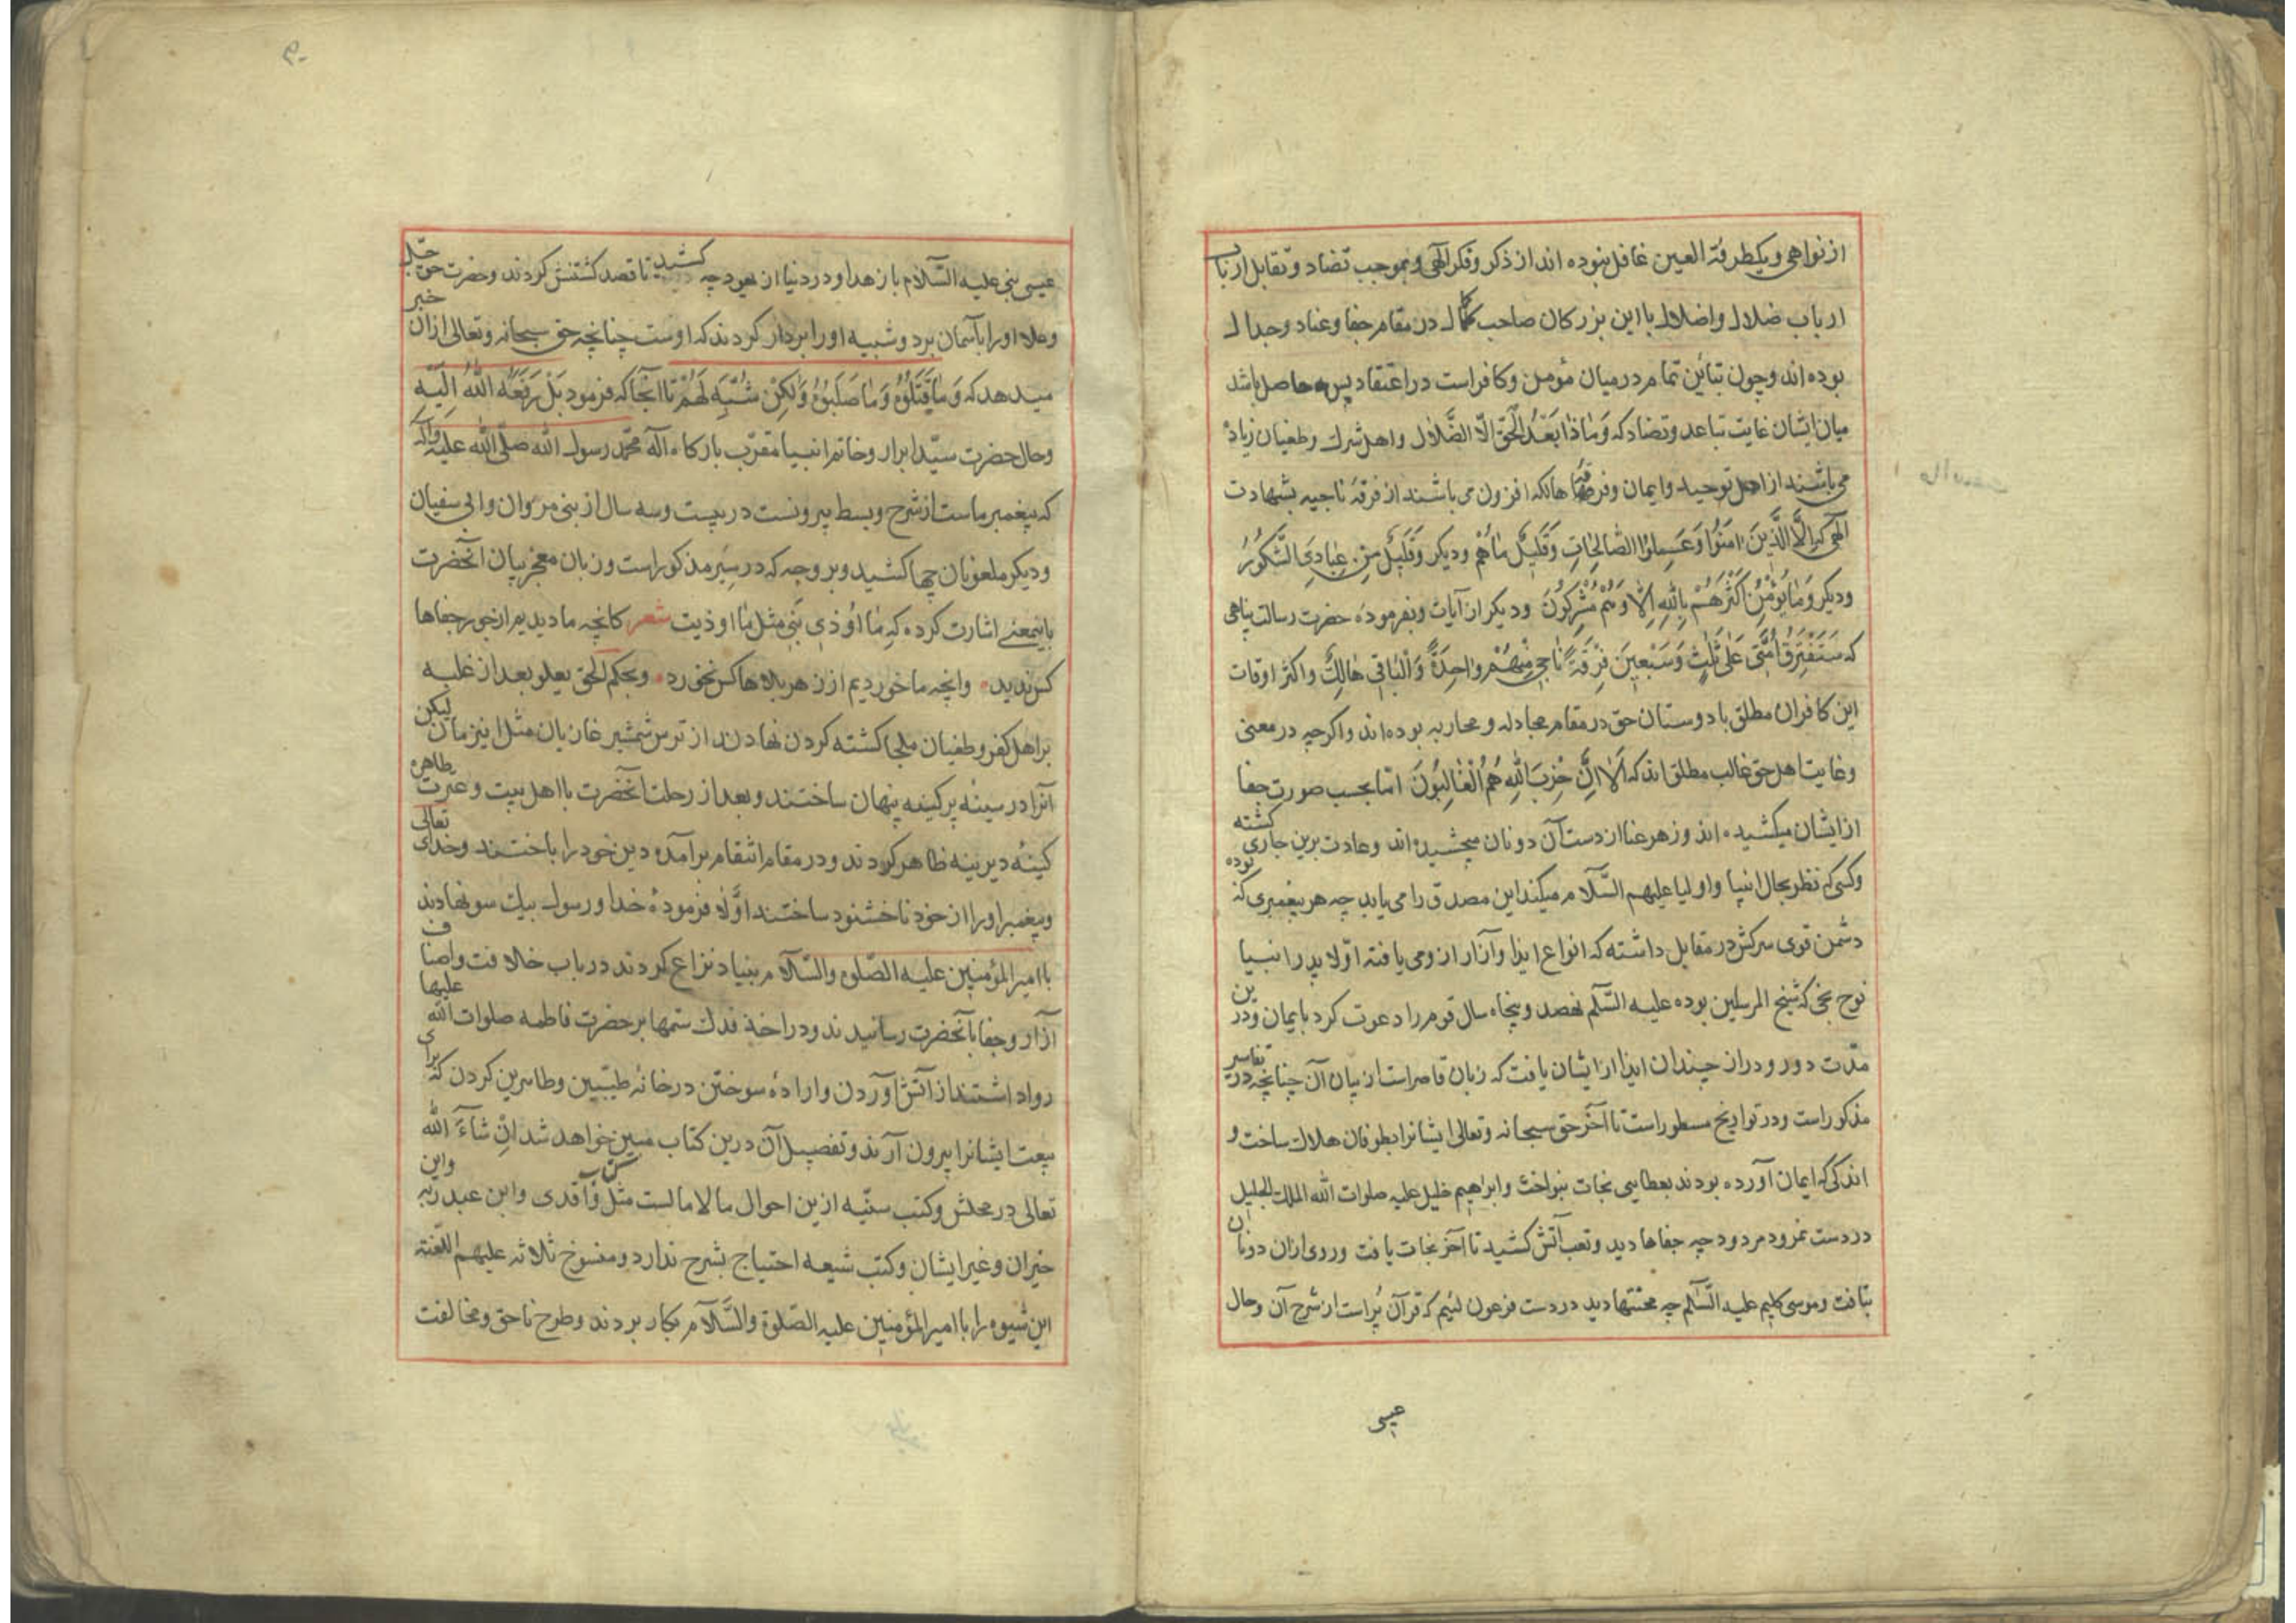 از نواهی و یکطرفة العین غافل نبوده اند از ذکر و فکر الهی و بموجب تضاد و تقابل ارباب
ارباب ضلال و اضلال با این بزرکان صاحب کمال در مقام جفا و عناد و جدال
بوده اند و چون تباین تمام در میان مؤمن و کافر است در اعتقاد پس حاصل باشد
میان ایشان غایت تباعد و تضاد که وَمَاذَا بَعْدَ الْحَقِّ اِلَّا الضَّلَال و اهل شرک و طغیان زیاده
می باشند از اهل توحید و ایمان و فرقهٔ هالکه افزون می باشند از فرقهٔ ناجیه بشهادت
الهی که اِلَّا الَّذِینَ اٰمَنُوا وَعَمِلُوا الصَّالِحَاتِ وَقَلِیلٌ مَاهُمْ و دیکر وَقَلِیلٌ مِنْ عِبَادِیَ الشَّکُورُ
و دیکر وَمَا یُؤْمِنُ اَکْثَرُهُمْ بِاللّٰهِ اِلَّا وَهُمْ مُشْرِکُونَ و دیکر از آیات و بفرموده حضرت رسالت پناهی
که سَتَفْتَرِقُ اُمَّتِی عَلٰی ثَلٰثٍ وَسَبْعِینَ فِرْقَةً نَاجِی مِنْهُمْ وَاحِدَةٌ وَالْبَاقِی هَالِکٌ و اکثر اوقات
این کافران مطلق با دوستان حق در مقام مجادله و محاربه بوده اند و اکرچه در معنی
و غایت اهل حق غالب مطلق اند که اَلَا اِنَّ حِزْبَ اللّٰهِ هُمُ الْغَالِبُونَ اما بحسب صورت جفا
از ایشان میکشیده اند و زهر عنا از دست آن دونان میچشیده اند و عادت برین جاری کشته
و کسی که نظر بحال انبیا و اولیا علیهم السلام میکند این مصدق را می یابد چه هر پیغمبری که بوده
دشمن قوی سرکش در مقابل داشته که انواع ایذا و آزار ازو می یافته اولا پدر انبیا
نوح نجی که شیخ المرسلین بوده علیه السلم نهصد و پنجاه سال قوم را دعوت کرد بایمان و درین
مدت دور و دراز چندان ایذا از ایشان یافت که زبان قاصر است از بیان آن چنانچه در تفاسیر
مذکور است و در تواریخ مسطور است تا آخر حق سبحانه و تعالی ایشانرا بطوفان هلاک ساخت و
اندکی که ایمان آورده بودند بعطایی نجات بنواخت و ابراهیم خلیل علیه صلوات الله الملک الجلیل
در دست نمرود مردود چه جفاها دید و تعب آتش کشید تا آخر نجات یافت و روی ازان دونان
بتافت و موسی کلیم علیه السلم چه محنتها دید در دست فرعون لئیم که قرآن پُر است از شرح آن و حال
عیسی
عیسی نبی علیه السلام با زهد او در دنیا از یهود چه کشید تا قصد کشتنش کردند و حضرت حق جل
و علا او را بآسمان برد و شبیه او را بردار کردند که اوست چنانچه حق سبحانه و تعالی ازان خبر
میدهد که وَمَا قَتَلُوهُ وَمَا صَلَبُوهُ وَلٰکِنْ شُبِّهَ لَهُمْ تا آنجا که فرمود بَلْ رَفَعَهُ اللّٰهُ اِلَیْهِ
و حال حضرت سید ابرار و خاتم انبیا مقرب بارکاه اله محمد رسول الله صلی الله علیه وآله
که پیغمبر ماست از شرح و بسط بیرونست در بیست و سه سال از بنی مروان و ابی سفیان
و دیکر ملعونان چها کشید و بر وجهی که در سِیَر مذکور است و زبان معجز بیان آنحضرت
باینمعنی اشارت کرده که مَا اُوذِیَ نَبِیٌّ مثل مَا اوذیت شعر کانچه ما دیدیم از جور جفاها
کس ندید وانچه ما خوردیم ازن زهر بلاها کس نخورد و بحکم الحق یعلو بعد از غلبه
بر اهل کفر و طغیان ملجا کشته کردن نهادند از ترس شمشیر غازیان مثل اینزمان لیکن
آنرا در سینهٔ پر کینه پنهان ساختند و بعد از رحلت آنحضرت با اهل بیت و عترت طاهره
کینهٔ دیرینه ظاهر کردند و در مقام انتقام برآمده دین خود را باختند و خدای تعالی
و پیغمبر او را از خود ناخشنود ساختند اوّلا فرمودهٔ خدا و رسول بیک سو نهادند
با امیر المؤمنین علیه الصلوة والسلام بنیاد نزاع کردند در باب خلافت و اصناف
آزار و جفا بآنحضرت رسانیدند و در اخذ فدک ستمها بر حضرت فاطمه صلوات الله علیها
روا داشتند از آتش آوردن و ارادهٔ سوختن در خانهٔ طیبین و طاهرین کردن که برای
بیعت ایشانرا بیرون آرند و تفصیل آن درین کتاب مبین خواهد شد اِنْ شَاءَ الله
تعالی در محلش و کتب سنیه ازین احوال مالامالست مثل کتاب واقدی و ابن عبد ربه و ابن
خیران و غیر ایشان و کتب شیعه احتیاج بشرح ندارد و منسوخ ثلاثه علیهم اللعنه
این شیوه را با امیر المؤمنین علیه الصلوة والسلام بکار بردند و طرح ناحق و مخالفت